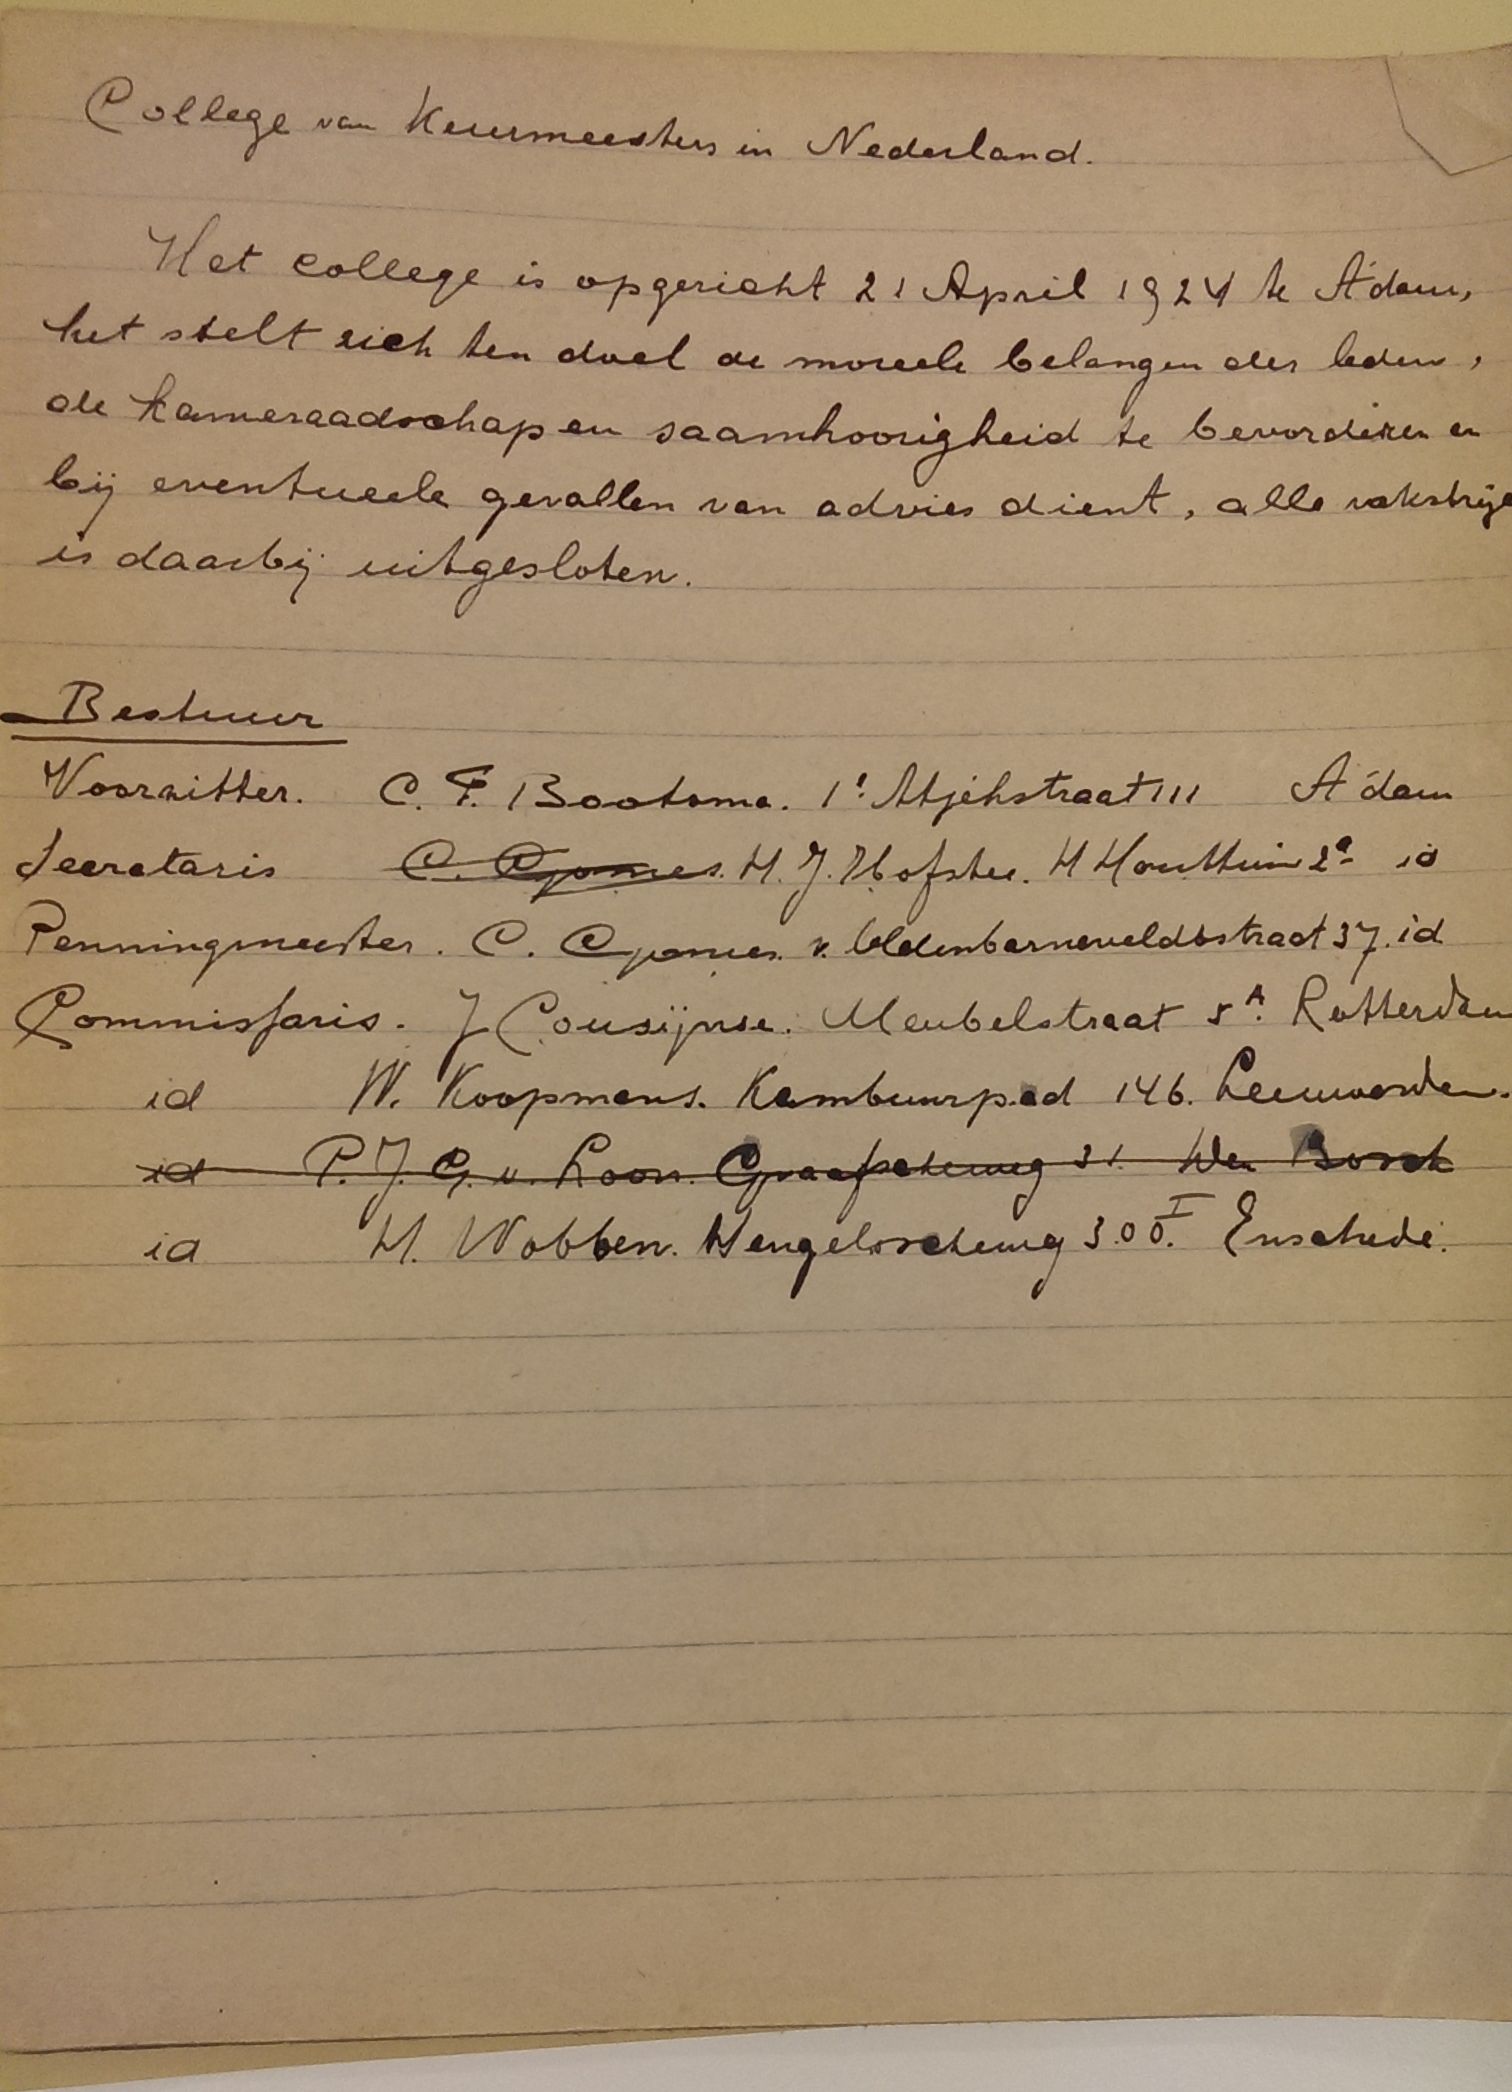 College van Keurmeesters in Nederland.
Het college is opgericht 21 April 1924 te A'dam,
het stelt zich ten doel de moreele belangen der leden,
de kameraadschap en saamhoorigheid te bevorderen en
bij eventueele gevallen van advies dient, alle vakstrije
is daarbij uitgesloten.
Bestuur
Voorzitter. C. F. Bootsma. 1e Atjehstraat 111 A'dam
Secretaris H. J. Hofstee. H Houttuin 2a id
Penningmeester. C. v. Oldenbarneveldtstraat 37. id
Commissaris. J Cousijnse. Meubelstraat 5A. Rotterdam
id W. Koopmans. Kambuurpad 146. Leeuwarden.
id P. J. G. v. Loon. Graafscheweg 31. Den Bosch
id H. Wobben. Hengeloscheweg 300I. Enschede.